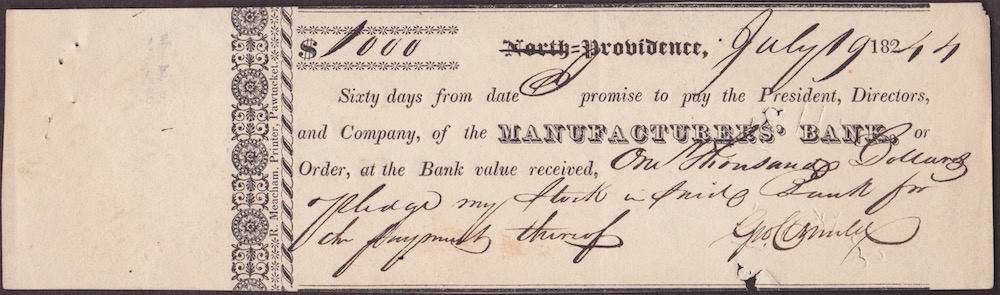 $ 1000 North=Providence, July 19 182 44
Sixty days from date I promise to pay the President, Directors,
and Company, of the MANUFACTURERS' BANK, or
Order, at the Bank value received, One thousand Dollars
I pledge my Stock in said Bank for
the payment thereof Geo
R. Meacham, Printer, Pawtucket.